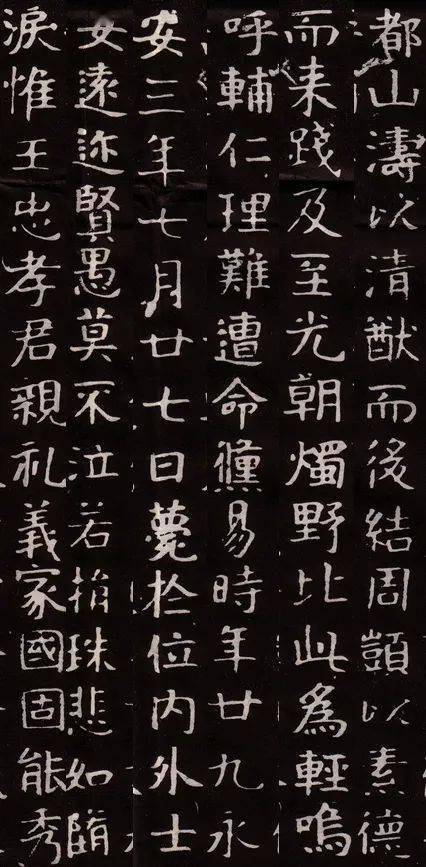 都山濤以清猷而後結周顗以素德
而来踐及至光朝燭野比此為輕嗚
呼輔仁理難遭命儵易時年廿九永
安三年七月廿七日薨扵位内外士
女遠迩賢愚莫不泣若捐珠悲如隋
淚惟王忠孝君親礼義家國固能秀